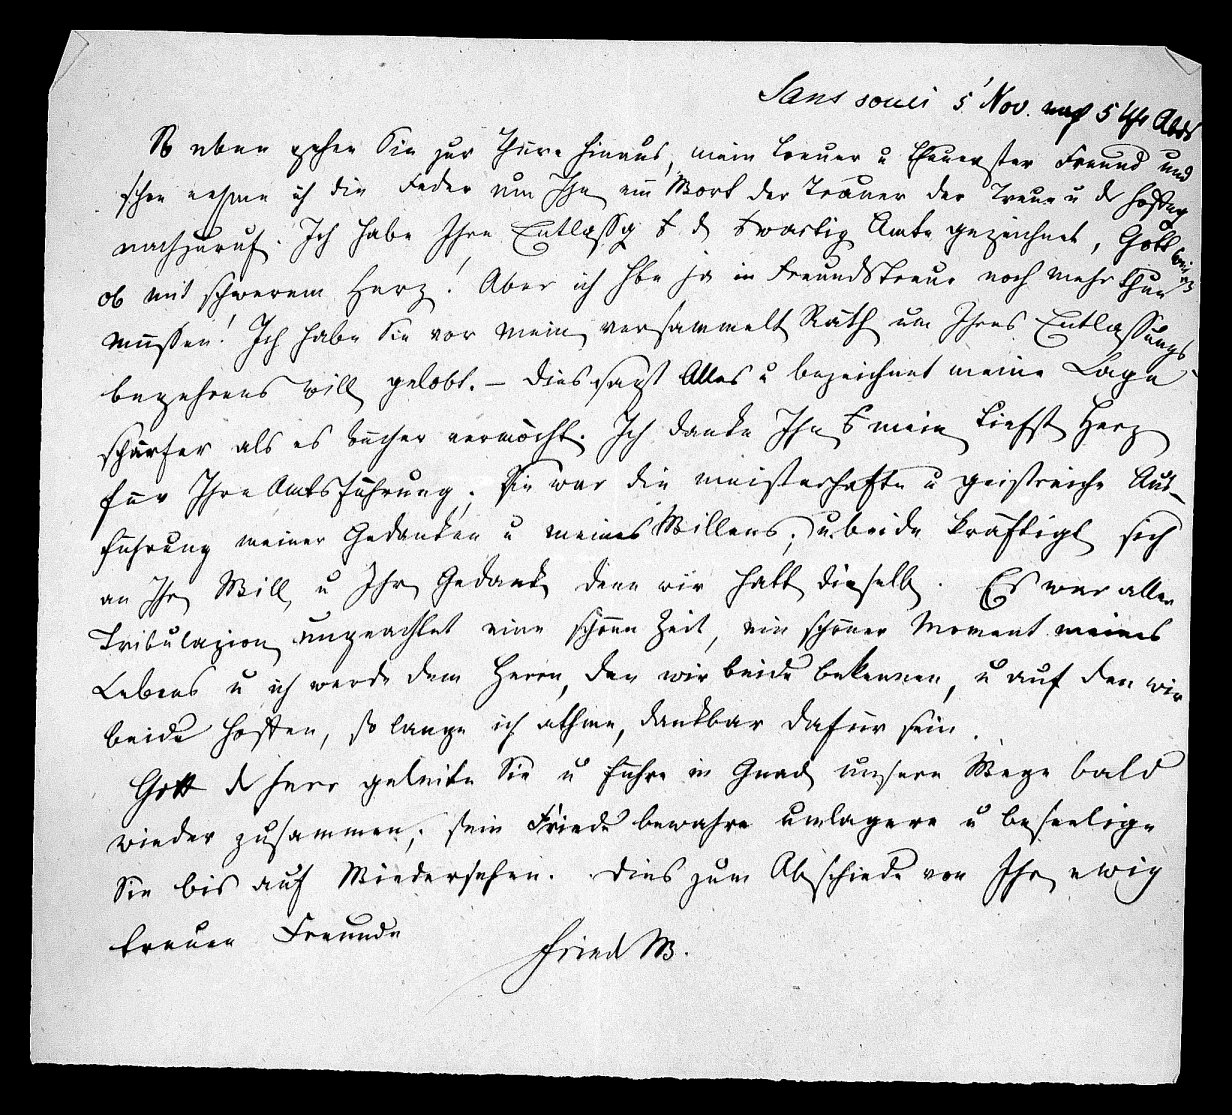 Sans souci 5' Nov. nach 5 Uhr Abds
So eben gehen Sie zur Thüre hinaus, mein treuer u theuerster Freund und
schon nehme ich die Feder um Ihn ein Wort der Trauer der Treue u d Hoffng
nachzuruf. Ich habe Ihre Entlassg d wärtig Amte gezeichnet, Gott weiß
ob mit schwerem Herz! Aber ich hbe ja in Freundstreue noch mehr thun
müssen! Ich habe Sie vor mein versammelt Rath um Ihres Entlassungs
begehrens will gelobt. – Dies sagt Alles u bezeichnet meine Lage
schärfer als es Bücher vermöcht. Ich danke Ihn mein tiefst Herz
für Ihre Amtsführung. Sie war die meisterhafte u geistreiche Aus-
führung meiner Gedanken u meines Willens; u. beide kräftigt sich
an Ihr Will u Ihr Gedank denn wir hatt dieselb. Es war aller
Tribulazion ungeachtet eine schöne Zeit, ein schöner Moment meines
Lebens u ich werde dem Herrn, den wir beide bekennen, u auf den wir
beide hoffen, so lange ich athme, dankbar dafür sein.
Gott d Herr geleite Sie u führe in Gnad unsere Wege bald
wieder zusammen; sein Friede bewahre umlagere u beseelige
Sie bis auf Wiedersehen. Dies zum Abschiede von Ihr ewig
treuen Freunde
Fried W.